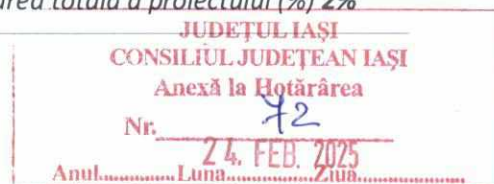 area totală a proiectului (%) 2%
JUDEȚUL IAȘI
CONSILIUL JUDEȚEAN IAȘI
Anexă la Hotărârea
Nr. 72
24. FEB. 2025
Anul............Luna............Ziua............